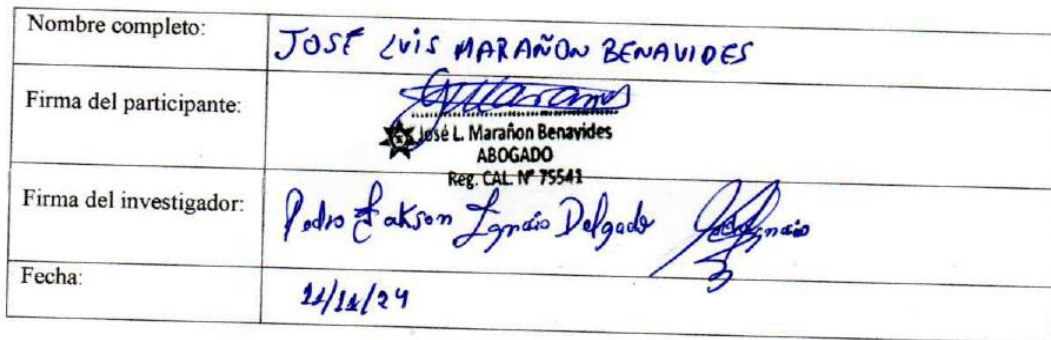 Nombre completo:
JOSÉ LUIS MARAÑON BENAVIDES
Firma del participante:
José L. Marañon Benavides
ABOGADO
Reg. CAL. Nº 75541
Firma del investigador:
Pedro Jakson Ignacio Delgado
Fecha:
11/11/24